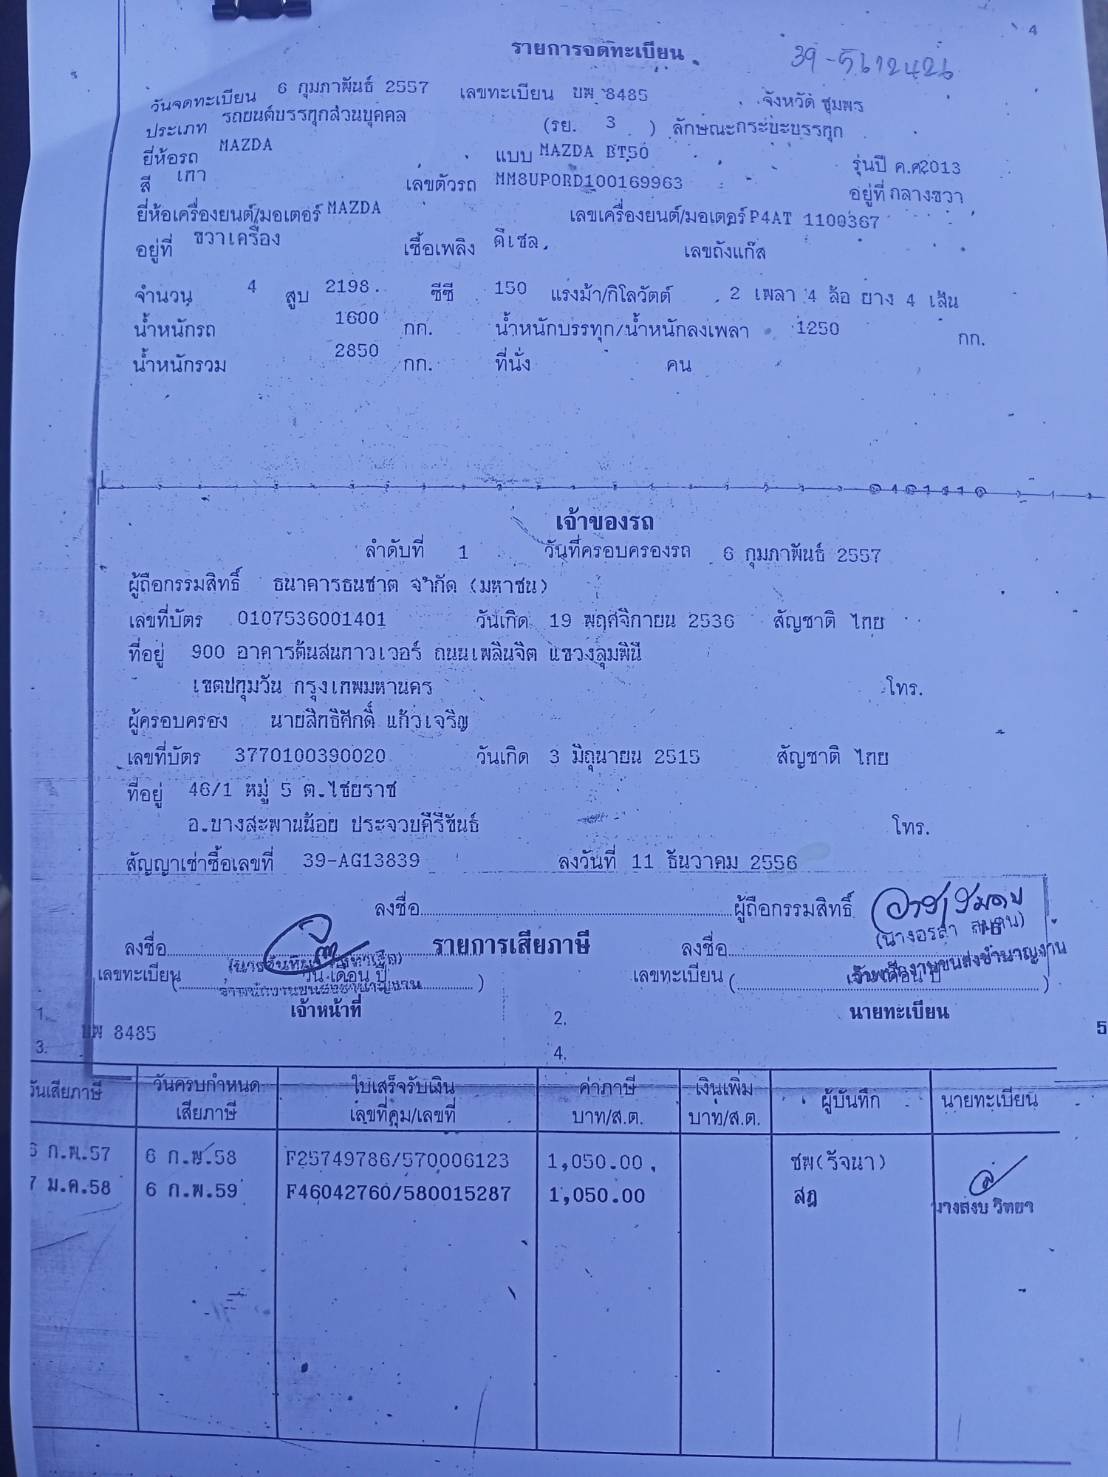 4
รายการจดทะเบียน
39-5612426
วันจดทะเบียน 6 กุมภาพันธ์ 2557 เลขทะเบียน บพ 8485 จังหวัด ชุมพร
ประเภท รถยนต์บรรทุกส่วนบุคคล (รย. 3 ) ลักษณะกระบะบรรทุก
ยี่ห้อรถ MAZDA แบบ MAZDA BT50 รุ่นปี ค.ศ2013
สี เทา เลขตัวรถ MM8UP0RD100169963 อยู่ที่ กลางขวา
ยี่ห้อเครื่องยนต์/มอเตอร์ MAZDA เลขเครื่องยนต์/มอเตอร์ P4AT 1100367
อยู่ที่ ขวาเครื่อง เชื้อเพลิง ดีเซล เลขถังแก๊ส
จำนวน 4 สูบ 2198 ซีซี 150 แรงม้า/กิโลวัตต์ 2 เพลา 4 ล้อ ยาง 4 เส้น
น้ำหนักรถ 1600 กก. น้ำหนักบรรทุก/น้ำหนักลงเพลา 1250 กก.
น้ำหนักรวม 2850 กก. ที่นั่ง คน
เจ้าของรถ
ลำดับที่ 1 วันที่ครอบครองรถ 6 กุมภาพันธ์ 2557
ผู้ถือกรรมสิทธิ์ ธนาคารธนชาต จำกัด (มหาชน)
เลขที่บัตร 0107536001401 วันเกิด 19 พฤศจิกายน 2536 สัญชาติ ไทย
ที่อยู่ 900 อาคารต้นสนทาวเวอร์ ถนนเพลินจิต แขวงลุมพินี
เขตปทุมวัน กรุงเทพมหานคร โทร.
ผู้ครอบครอง นายสิทธิศักดิ์ แก้วเจริญ
เลขที่บัตร 3770100390020 วันเกิด 3 มิถุนายน 2515 สัญชาติ ไทย
ที่อยู่ 46/1 หมู่ 5 ต.ไชยราช
อ.บางสะพานน้อย ประจวบคีรีขันธ์ โทร.
สัญญาเช่าซื้อเลขที่ 39-AG13839 ลงวันที่ 11 ธันวาคม 2556
ลงชื่อ ผู้ถือกรรมสิทธิ์
ลงชื่อ รายการเสียภาษี ลงชื่อ
เลขทะเบียน วัน เดือน ปี เลขทะเบียน
เจ้าหน้าที่ นายทะเบียน
1. บพ 8485 2. 5
3. 4.
วันเสียภาษี วันครบกำหนดเสียภาษี ใบเสร็จรับเงิน เลขที่คุม/เลขที่ ค่าภาษี บาท/ส.ต. เงินเพิ่ม บาท/ส.ต. ผู้บันทึก นายทะเบียน
6 ก.พ.57 6 ก.พ.58 F25749786/570006123 1,050.00 ชพ(รัจนา)
7 ม.ค.58 6 ก.พ.59 F46042760/580015287 1,050.00 สฎ
นางสงบ วิทยา